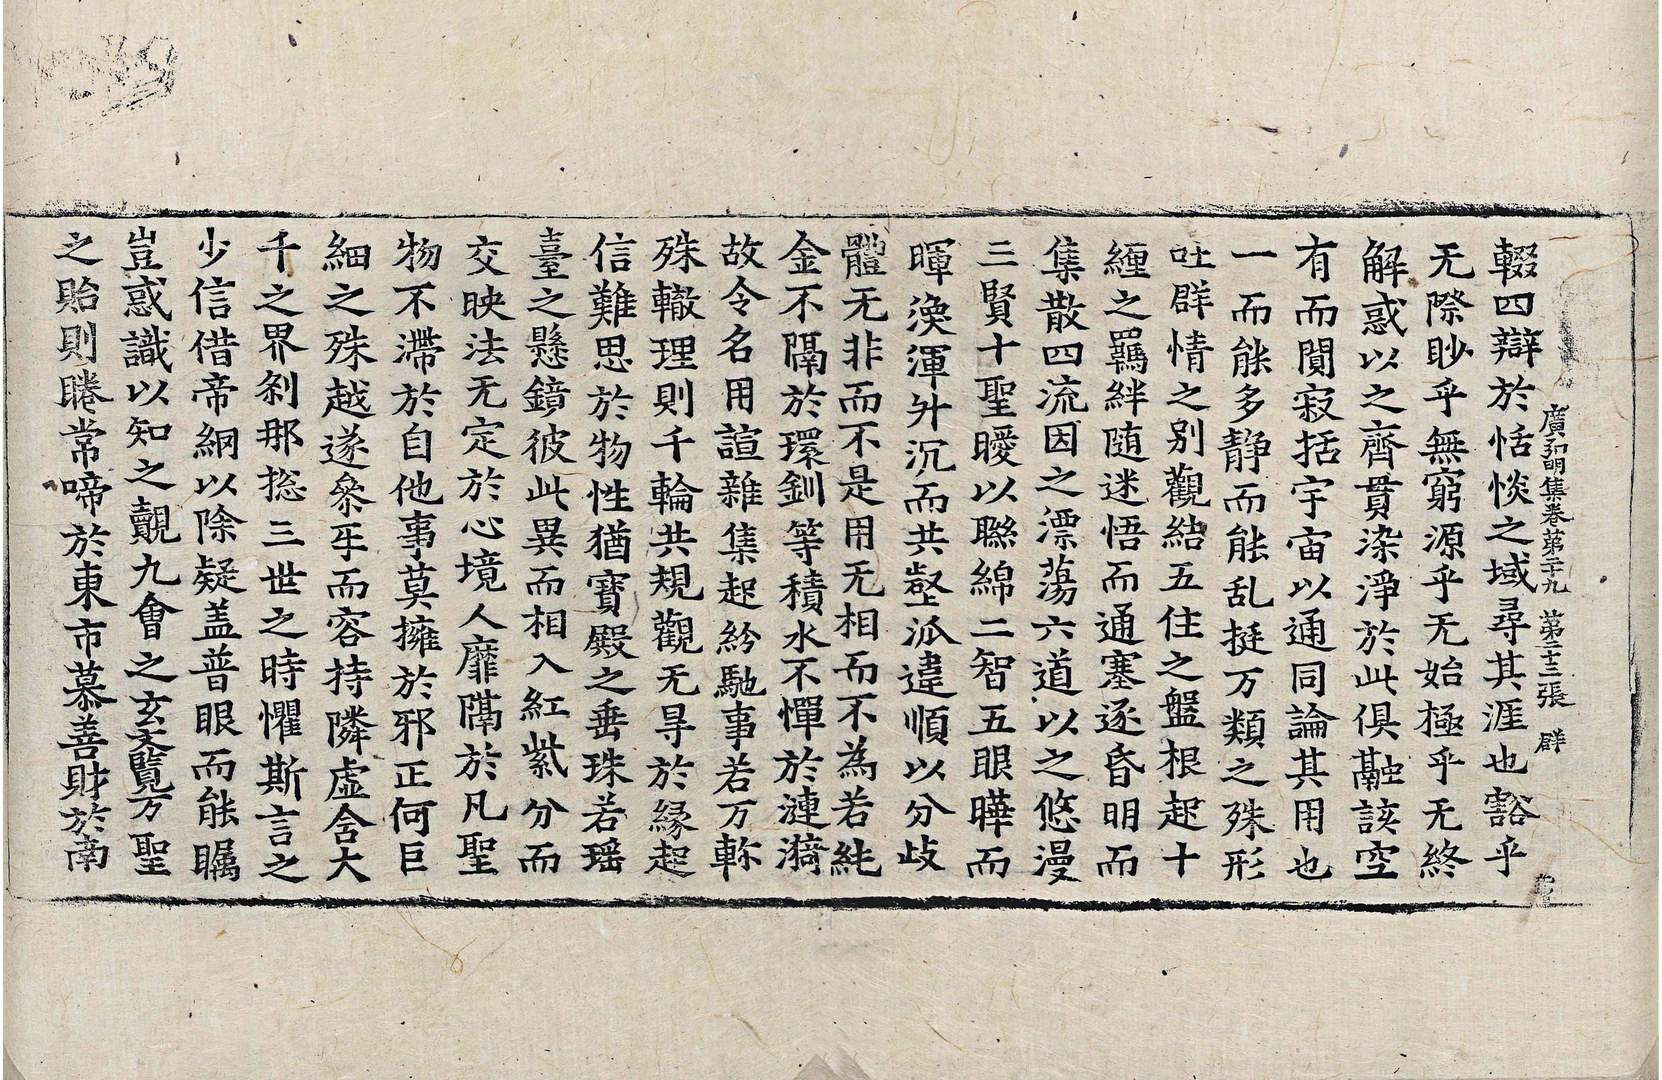 廣弘明集卷第二十九 第三十三張 群
輟四辯於恬惔之域尋其涯也豁乎
无際眇乎無窮源乎无始極乎无終
解惑以之齊貫染淨於此俱融該空
有而閴寂括宇宙以通同論其用也
一而能多静而能乱挺万類之殊形
吐群情之別觀結五住之盤根起十
纏之羈絆随迷悟而通塞逐昏明而
集散四流因之漂蕩六道以之悠漫
三賢十聖曖以聯綿二智五眼曄而
暉渙渾升沉而共壑泒違順以分歧
體无非而不是用无相而不為若純
金不隔於環釧等積水不憚於漣漪
故令名用諠雜集起紛馳事若万軫
殊轍理則千輪共規觀无㝵於緣起
信難思於物性猶寶殿之垂珠若瑶
臺之懸鏡彼此異而相入紅紫分而
交映法无定於心境人靡隔於凡聖
物不滯於自他事莫擁於邪正何巨
細之殊越遂叅㸦而容持隣虛含大
千之界刹那揔三世之時懼斯言之
少信借帝網以除疑盖普眼而能矚
豈惑識以知之覿九會之玄文覽万聖
之貽則睠常啼於東市慕善財於南